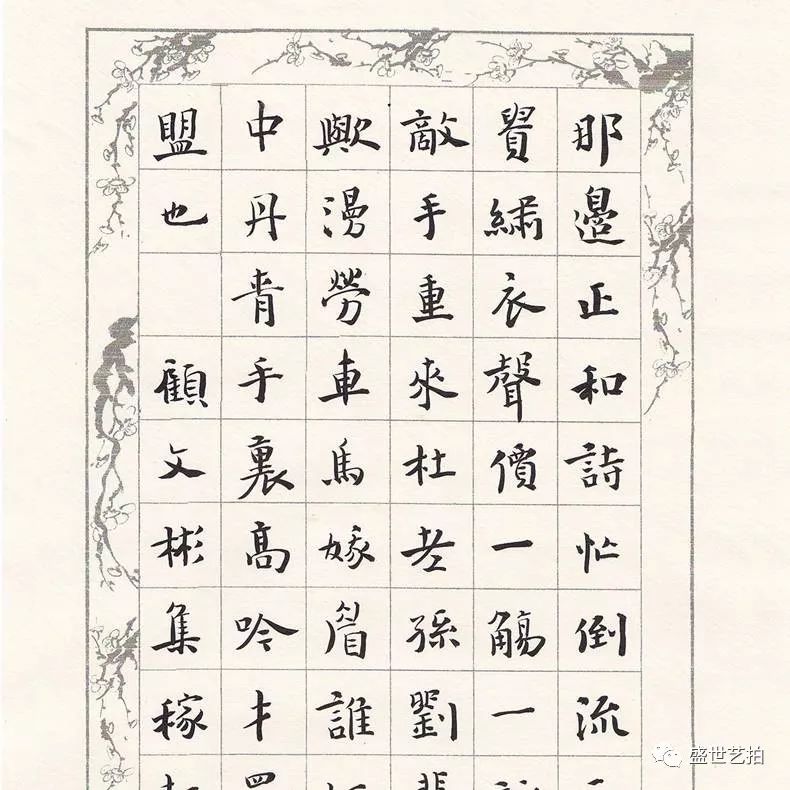 那邊正和詩忙倒流
繡衣聲價一觴一
敵手重來杜老孫劉
歟漫勞車馬嫁眉誰
中丹青手裏高吟才
盟也 顧文彬集稼
盛世艺拍